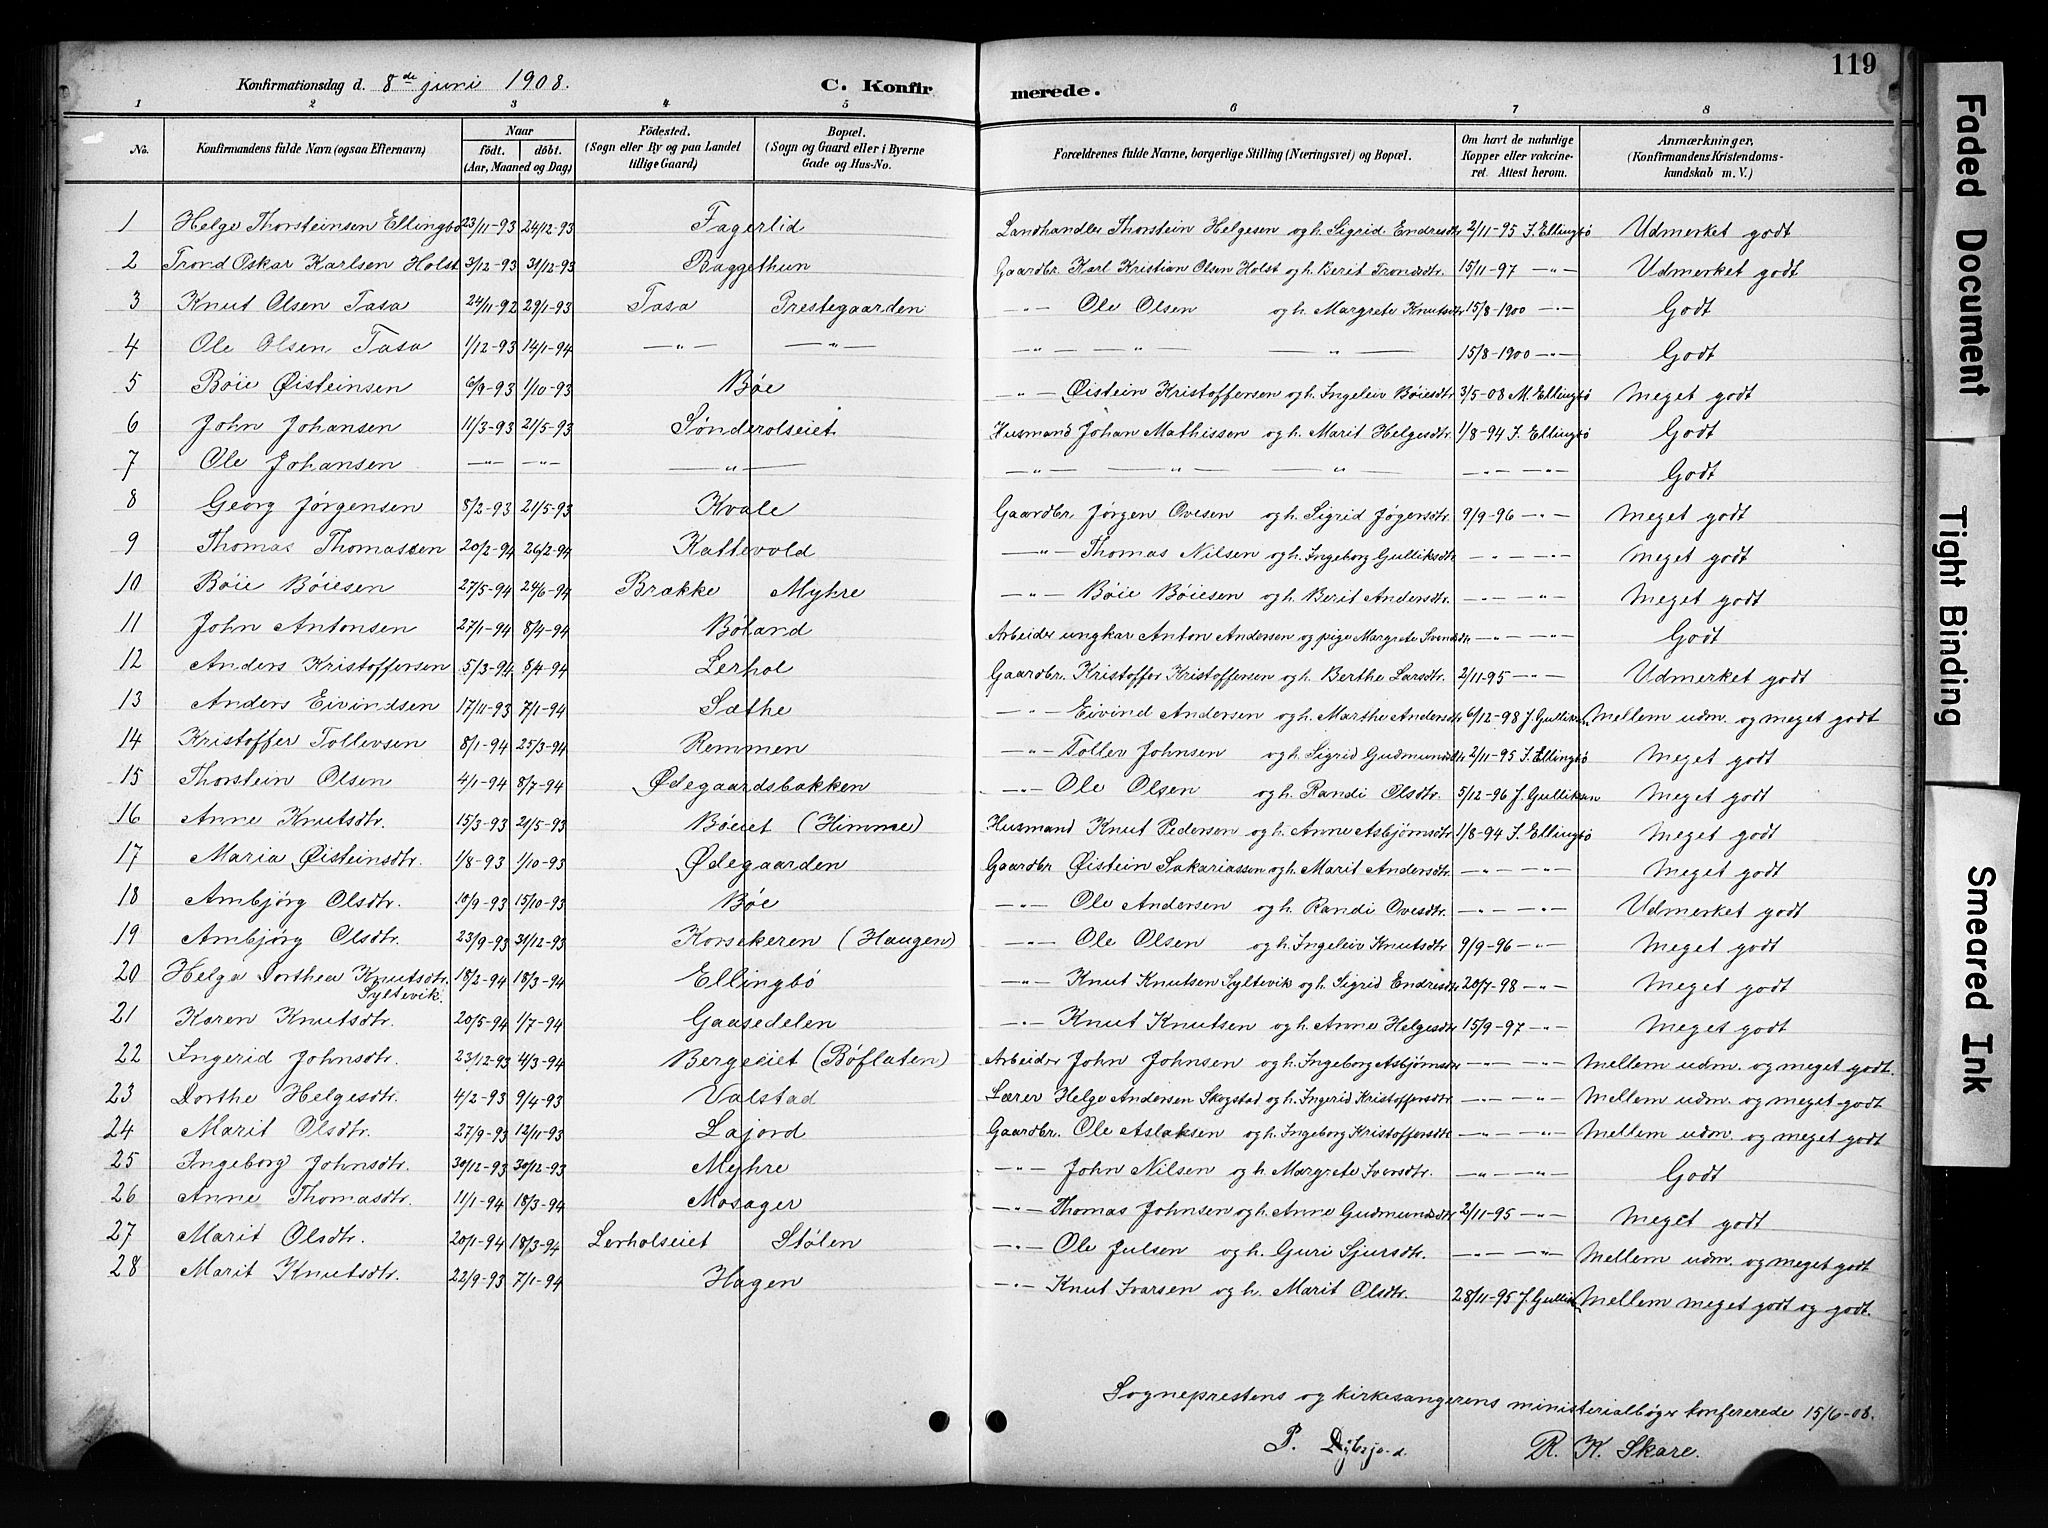 119
Konfirmationsdag d. 8de juni 1908. C. Konfirmerede.
1 2 3 4 5 6 7 8
No. Konfirmandens fulde Navn (ogsaa Efternavn) Naar födt. döbt. (Aar, Maaned og Dag) Födested. (Sogn eller By og paa Landet tillige Gaard) Bopæl. (Sogn og Gaard eller i Byerne Gade og Hus-No. Forældrenes fulde Navne, borgerlige Stilling (Næringsvei) og Bopæl. Om havt de naturlige Kopper eller vakcineret. Attest herom. Anmærkninger, (Konfirmandens Kristendomskundskab m. V.)
1 Helge Thorsteinsen Ellingbö 23/11-93 24/12-93 Fagerlid Landhandler Thorstein Helgesen og h. Sigrid Endresdtr 2/11-95 I. Ellingbö Udmerket godt
2 Trond Oskar Karlsen Holst 3/12-93 31/12-93 Baggethun Gaardbr. Karl Kristian Olsen Holst og h. Berit Trondsdtr. 15/11-97 -"- Udmerket godt
3 Knut Olsen Tasa 24/11-92 29/1-93 Tasa Prestegaarden -"- Ole Olsen og h. Margrete Knutsdtr 15/8-1900 -"- Godt
4 Ole Olsen Tasa 1/12-93 14/1-94 -"- -"- -"- -"- -"- 15/8-1900 -"- Godt
5 Böie Øisteinsen 6/9-93 1/10-93 Böe -"- Øistein Kristoffersen og h. Ingeleiv Böiesdtr. 3/5-08 M. Ellingbö Meget godt
6 John Johansen 11/3-93 21/5-93 Sønderolseiet Husmand Johan Mathissen og h. Marit Helgesdtr. 1/8-94 I. Ellingbö Godt
7 Ole Johansen -"- -"- -"- -"- -"- -"- -"- -"- Godt
8 Georg Jørgensen 8/2-93 21/5-93 Kvale Gaardbr. Jørgen Ovesen og h. Sigrid Jøgensdtr. 9/9-96 -"- Meget godt
9 Thomas Thomassen 20/2-94 26/2-94 Kattevold -"- Thomas Nilsen og h. Ingeborg Gulliksdtr -"- -"- Meget godt
10 Böie Böiesen 27/5-94 24/6-94 Brække Myhre -"- Böie Böiesen og h. Berit Andersdtr. -"- -"- Meget godt
11 John Antonsen 27/1-94 8/4-94 Böland Arbeider ungkar Anton Andersen og pige Margrete Svendsdtr -"- -"- Godt
12 Anders Kristoffersen 5/3-94 8/4-94 Lerhol Gaardbr. Kristoffer Kristoffersen og h. Berthe Larsdtr. 2/11-95 -"- Udmerket godt
13 Anders Eivindsen 17/11-93 7/1-94 Sæthe -"- Eivind Andersen og h. Marthe Andersdtr 6/12-98 J. Gulliksen Mellem udm. og meget godt
14 Kristoffer Tollevsen 8/1-94 25/3-94 Remmen -"- Tollev Johnsen og h. Sigrid Gudmundsdtr. 2/11-95 I. Ellingbö Meget godt
15 Thorstein Olsen 4/1-94 8/7-94 Ødegaardsbakken -"- Ole Olsen og h. Randi Olsdtr. 5/12-96 J. Gulliksen Meget godt
16 Anne Knutsdtr. 15/3-93 21/5-93 Böeiet (Himme) Husmand Knut Pedersen og h. Anne Asbjørnsdtr. 1/8-94 I. Ellingbö Meget godt
17 Maria Øisteinsdtr. 1/8-93 1/10-93 Ødegaarden Gaardbr Øistein Sakariassen og h. Marit Andersdtr. -"- -"- Meget godt
18 Ambjörg Olsdtr. 10/9-93 15/10-93 Böe -"- Ole Andersen og h. Randi Ovesdtr. -"- -"- Udmerket godt
19 Ambjörg Olsdtr. 23/9-93 31/12-93 Korsekeren (Haugen) -"- Ole Olsen og h. Ingeleiv Knutsdtr 9/9-96 -"- Meget godt
20 Helga Dorthea Knutsdtr. Syltevik. 18/2-94 18/3-94 Ellingbö -"- Knut Knutsen Syltevik og h. Sigrid Endresdtr 20/7-98 -"- Meget godt
21 Karen Knutsdtr. 20/5-94 1/7-94 Gaasedelen -"- Knut Knutsen og h. Anne Helgesdtr 15/9-97 -"- Meget godt
22 Ingerid Johnsdtr. 23/12-93 4/3-94 Bergeiet (Böflaten) Arbeider John Johnsen og h. Ingeborg Asbjørnsdtr -"- -"- Mellem udm. og meget godt.
23 Dorthe Helgesdtr. 4/2-93 9/4-93 Valstad Lærer Helge Andersen Skogstad og h. Ingerid Kristoffersdtr. -"- -"- Mellem udm. og meget godt
24 Marit Olsdtr. 27/9-93 12/11-93 Lajord Gaardbr. Ole Aslaksen og h. Ingeborg Kristoffersdtr -"- -"- Mellem udm. og meget godt
25 Ingeborg Johnsdtr. 30/12-93 30/12-93 Myhre -"- John Nilsen og h. Margrete Iversdtr. -"- -"- Godt
26 Anne Thomasdtr. 11/1-94 18/3-94 Mosager -"- Thomas Johnsen og h. Anne Gudmundsdtr 2/11-95 -"- Meget godt
27 Marit Olsdtr. 20/1-94 18/3-94 Lerholseiet Stölen -"- Ole Julsen og h. Guri Sjursdtr. -"- -"- Mellem udm. og meget godt
28 Marit Knutsdtr. 22/9-93 7/1-94 Hagen -"- Knut Ivarsen og h. Marit Olsdtr. 28/11-95 J. Gulliksen Mellem meget godt og godt.
Sogneprestens og kirkesangerens ministerialbøger konfererede 15/6-08.
P. R. K. Skare.
Faded Document
Tight Binding
Smeared Ink